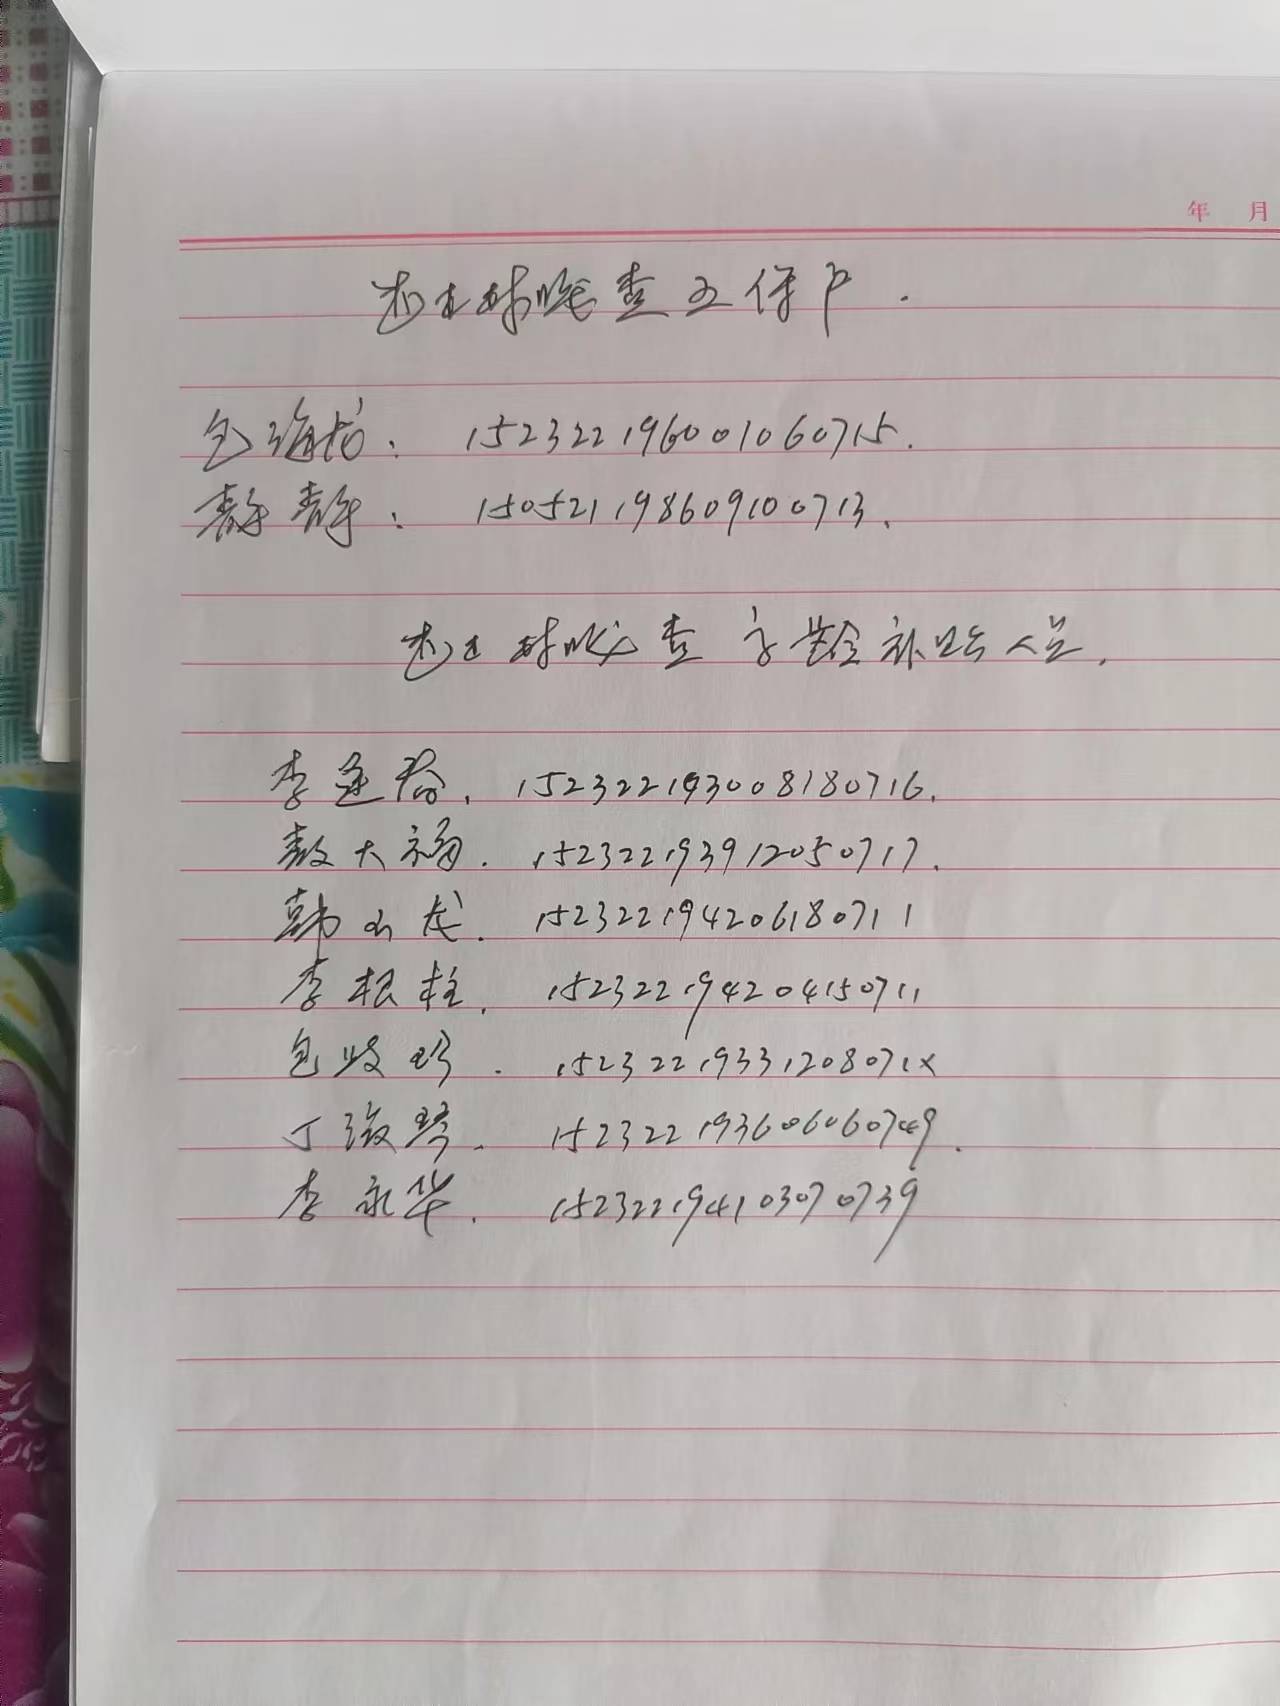 年 月
村 查五保户.
包海龙: 152322196001060715.
静静: 150521198609100713.
村 查 高龄补贴人员.
李连 . 152322193008180716.
敖大福. 152322193912050717.
韩 龙. 152322194206180711
李根柱. 152322194204150711
包 珍. 15232219331208071X
丁 琴. 152322193606060749.
李永华. 152322194103070739